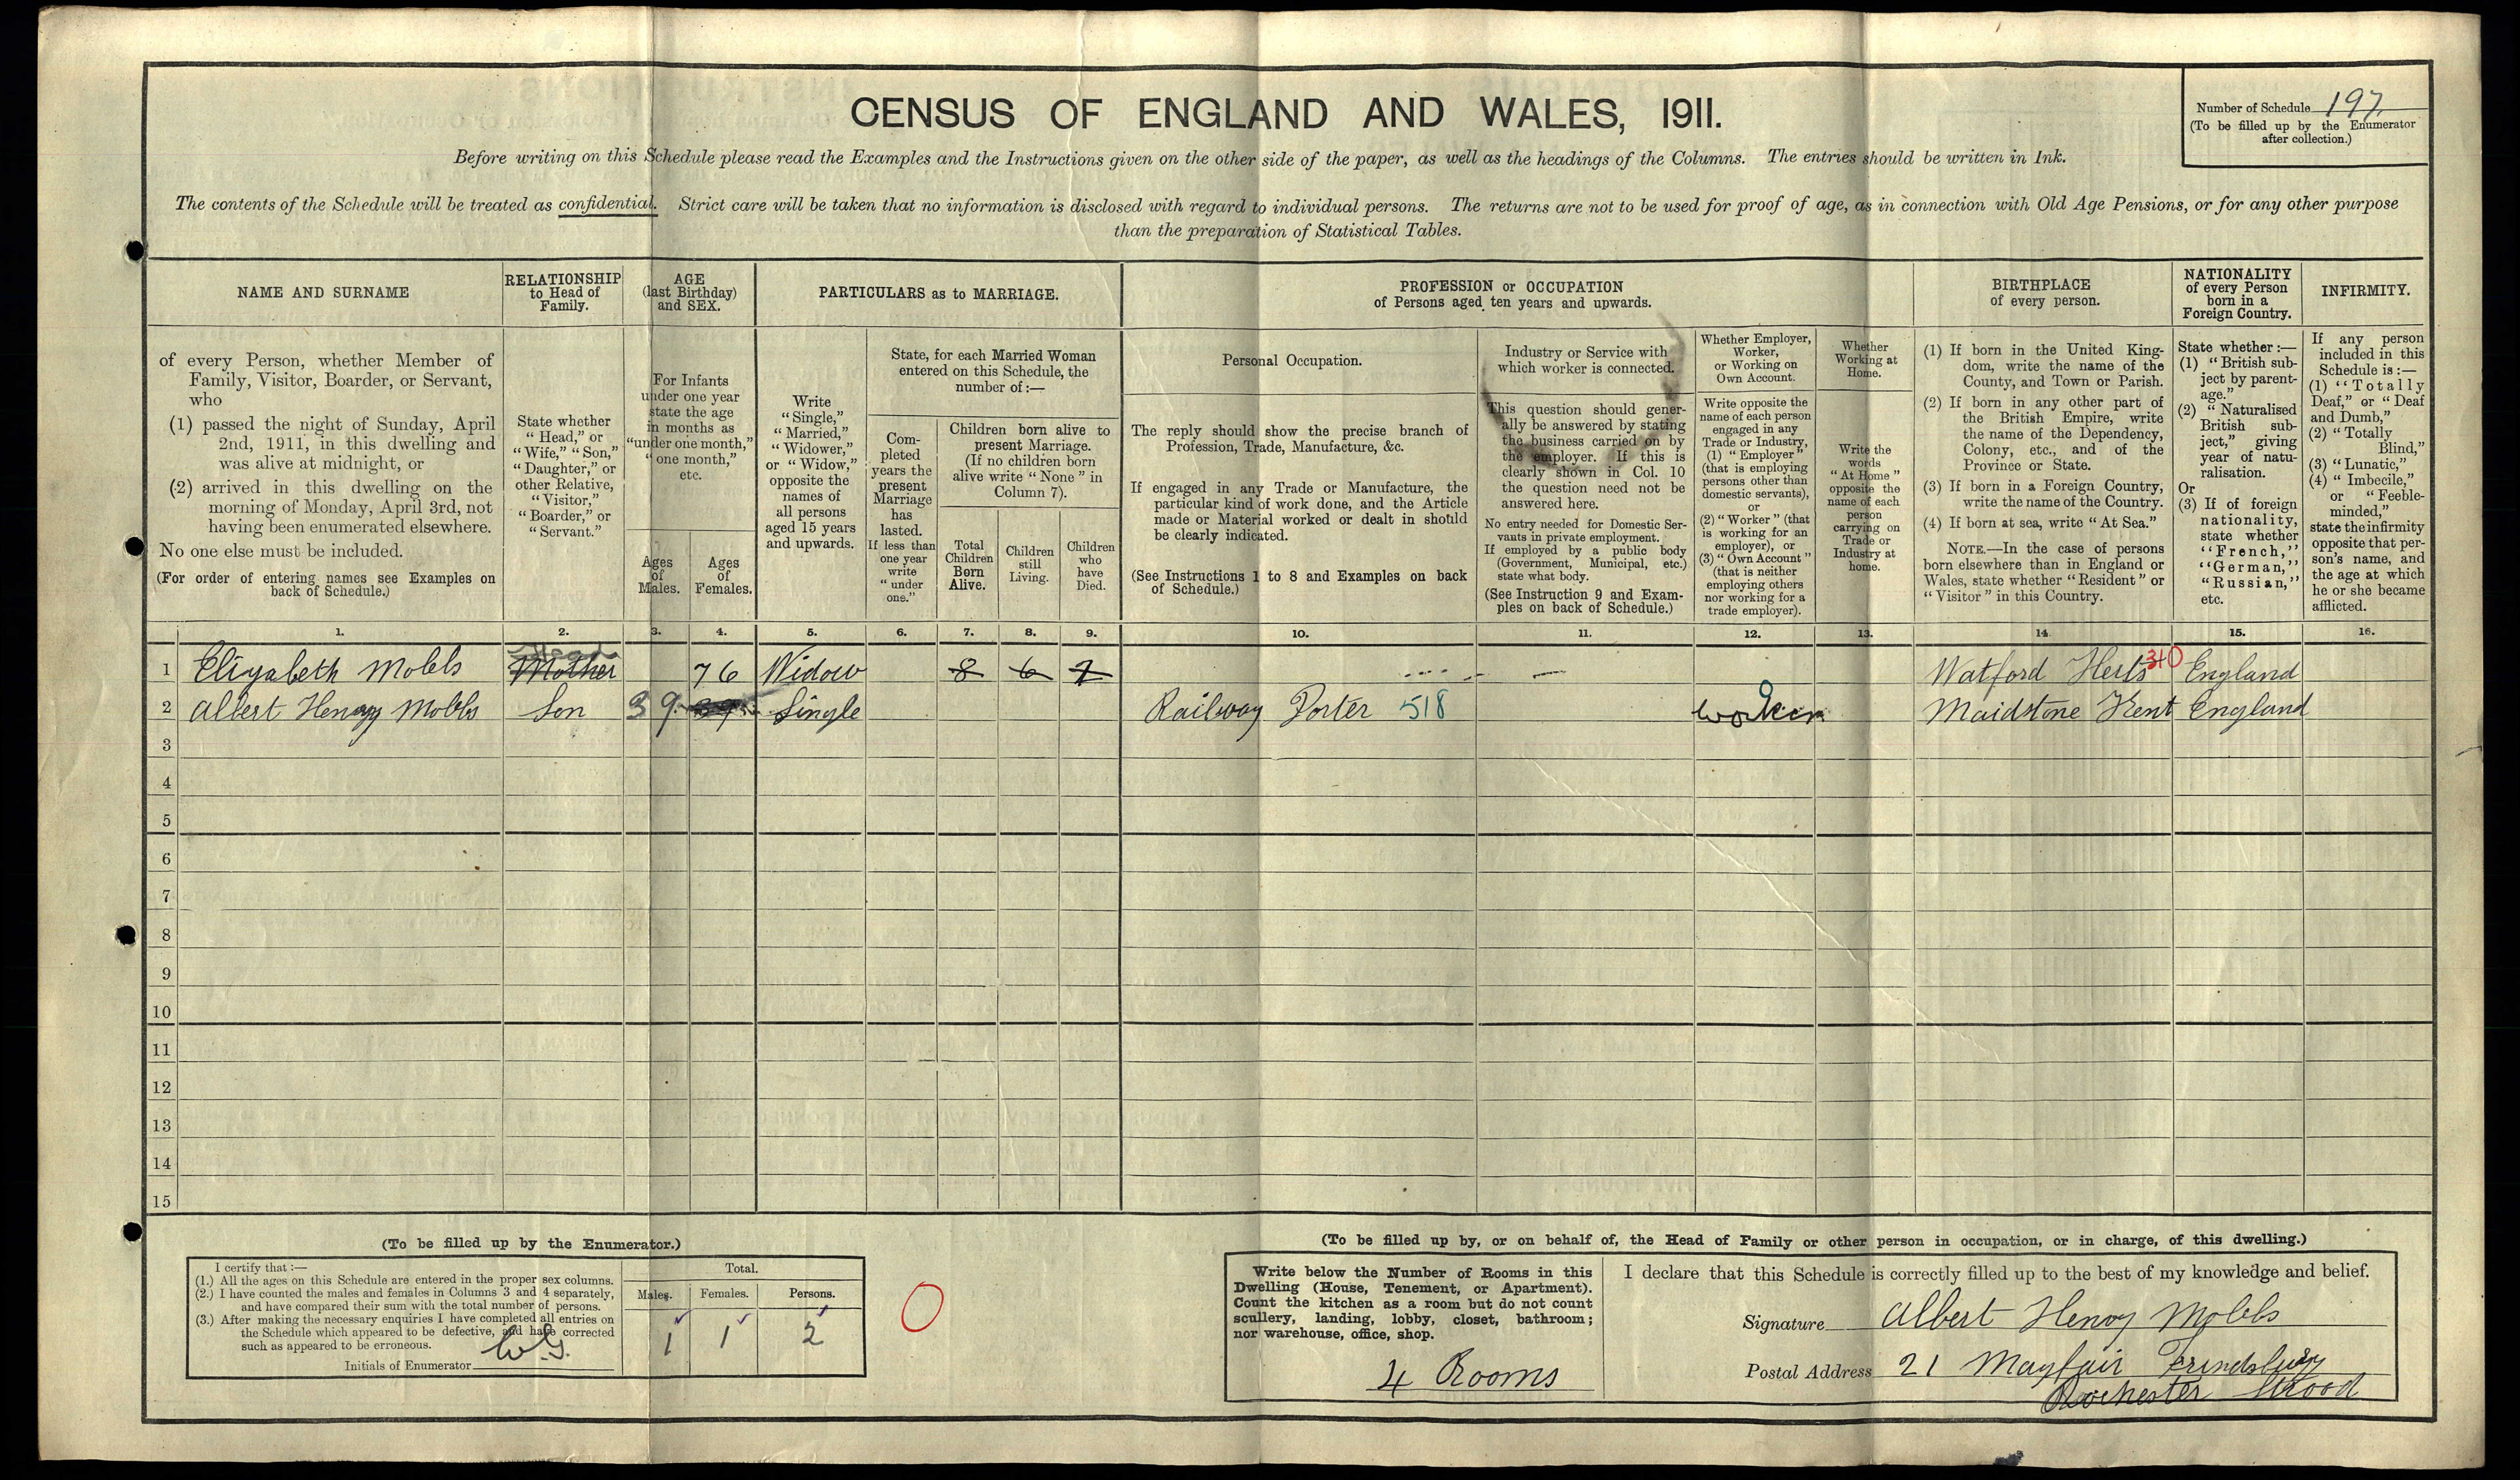 CENSUS OF ENGLAND AND WALES, 1911.
Number of Schedule 197
(To be filled up by the Enumerator
after collection.)
Before writing on this Schedule please read the Examples and the Instructions given on the other side of the paper, as well as the headings of the Columns. The entries should be written in Ink.
The contents of the Schedule will be treated as confidential. Strict care will be taken that no information is disclosed with regard to individual persons. The returns are not to be used for proof of age, as in connection with Old Age Pensions, or for any other purpose
than the preparation of Statistical Tables.
NAME AND SURNAME
of every Person, whether Member of
Family, Visitor, Boarder, or Servant,
who
(1) passed the night of Sunday, April
2nd, 1911, in this dwelling and
was alive at midnight, or
(2) arrived in this dwelling on the
morning of Monday, April 3rd, not
having been enumerated elsewhere.
No one else must be included.
(For order of entering names see Examples on
back of Schedule.)
RELATIONSHIP
to Head of
Family.
State whether
"Head," or
"Wife," "Son,"
"Daughter," or
other Relative,
"Visitor,"
"Boarder," or
"Servant."
AGE
(last Birthday)
and SEX.
For Infants
under one year
state the age
in months as
"under one month,"
"one month,"
etc.
Ages
of
Males.
Ages
of
Females.
PARTICULARS as to MARRIAGE.
Write
"Single,"
"Married,"
"Widower,"
or "Widow,"
opposite the
names of
all persons
aged 15 years
and upwards.
State, for each Married Woman
entered on this Schedule, the
number of:—
Com-
pleted
years the
present
Marriage
has
lasted.
If less than
one year
write
"under
one."
Children born alive to
present Marriage.
(If no children born
alive write "None" in
Column 7).
Total
Children
Born
Alive.
Children
still
Living.
Children
who
have
Died.
PROFESSION or OCCUPATION
of Persons aged ten years and upwards.
Personal Occupation.
The reply should show the precise branch of
Profession, Trade, Manufacture, &c.
If engaged in any Trade or Manufacture, the
particular kind of work done, and the Article
made or Material worked or dealt in should
be clearly indicated.
(See Instructions 1 to 8 and Examples on back
of Schedule.)
Industry or Service with
which worker is connected.
This question should gener-
ally be answered by stating
the business carried on by
the employer. If this is
clearly shown in Col. 10
the question need not be
answered here.
No entry needed for Domestic Ser-
vants in private employment.
If employed by a public body
(Government, Municipal, etc.)
state what body.
(See Instruction 9 and Exam-
ples on back of Schedule.)
Whether Employer,
Worker,
or Working on
Own Account.
Write opposite the
name of each person
engaged in any
Trade or Industry,
(1) "Employer"
(that is employing
persons other than
domestic servants),
or
(2) "Worker" (that
is working for an
employer), or
(3) "Own Account"
(that is neither
employing others
nor working for a
trade employer).
Whether
Working at
Home.
Write the
words
"At Home"
opposite the
name of each
person
carrying on
Trade or
Industry at
home.
BIRTHPLACE
of every person.
(1) If born in the United King-
dom, write the name of the
County, and Town or Parish.
(2) If born in any other part of
the British Empire, write
the name of the Dependency,
Colony, etc., and of the
Province or State.
(3) If born in a Foreign Country,
write the name of the Country.
(4) If born at sea, write "At Sea."
NOTE.—In the case of persons
born elsewhere than in England or
Wales, state whether "Resident" or
"Visitor" in this Country.
NATIONALITY
of every Person
born in a
Foreign Country.
State whether:—
(1) "British sub-
ject by parent-
age."
(2) "Naturalised
British sub-
ject," giving
year of natu-
ralisation.
Or
(3) If of foreign
nationality,
state whether
"French,"
"German,"
"Russian,"
etc.
INFIRMITY.
If any person
included in this
Schedule is:—
(1) "Totally
Deaf," or "Deaf
and Dumb,"
(2) "Totally
Blind,"
(3) "Lunatic,"
(4) "Imbecile,"
or "Feeble-
minded,"
state the infirmity
opposite that per-
son's name, and
the age at which
he or she became
afflicted.
1. 2. 3. 4. 5. 6. 7. 8. 9. 10. 11. 12. 13. 14. 15. 16.
Head
1 Elizabeth Mobbs Mother 76 Widow 8 6 2 Watford Herts 310 England
2 Albert Henry Mobbs Son 39 Single Railway Porter 518 Worker Maidstone Kent England
3
4
5
6
7
8
9
10
11
12
13
14
15
(To be filled up by the Enumerator.)
I certify that:—
(1.) All the ages on this Schedule are entered in the proper sex columns.
(2.) I have counted the males and females in Columns 3 and 4 separately,
and have compared their sum with the total number of persons.
(3.) After making the necessary enquiries I have completed all entries on
the Schedule which appeared to be defective, and have corrected
such as appeared to be erroneous.
Initials of Enumerator W.G.
Total.
Males. Females. Persons.
1 1 2
0
(To be filled up by, or on behalf of, the Head of Family or other person in occupation, or in charge, of this dwelling.)
Write below the Number of Rooms in this
Dwelling (House, Tenement, or Apartment).
Count the kitchen as a room but do not count
scullery, landing, lobby, closet, bathroom;
nor warehouse, office, shop.
4 Rooms
I declare that this Schedule is correctly filled up to the best of my knowledge and belief.
Signature Albert Henry Mobbs
Postal Address 21 Mayfair Frindsbury
Rochester Strood